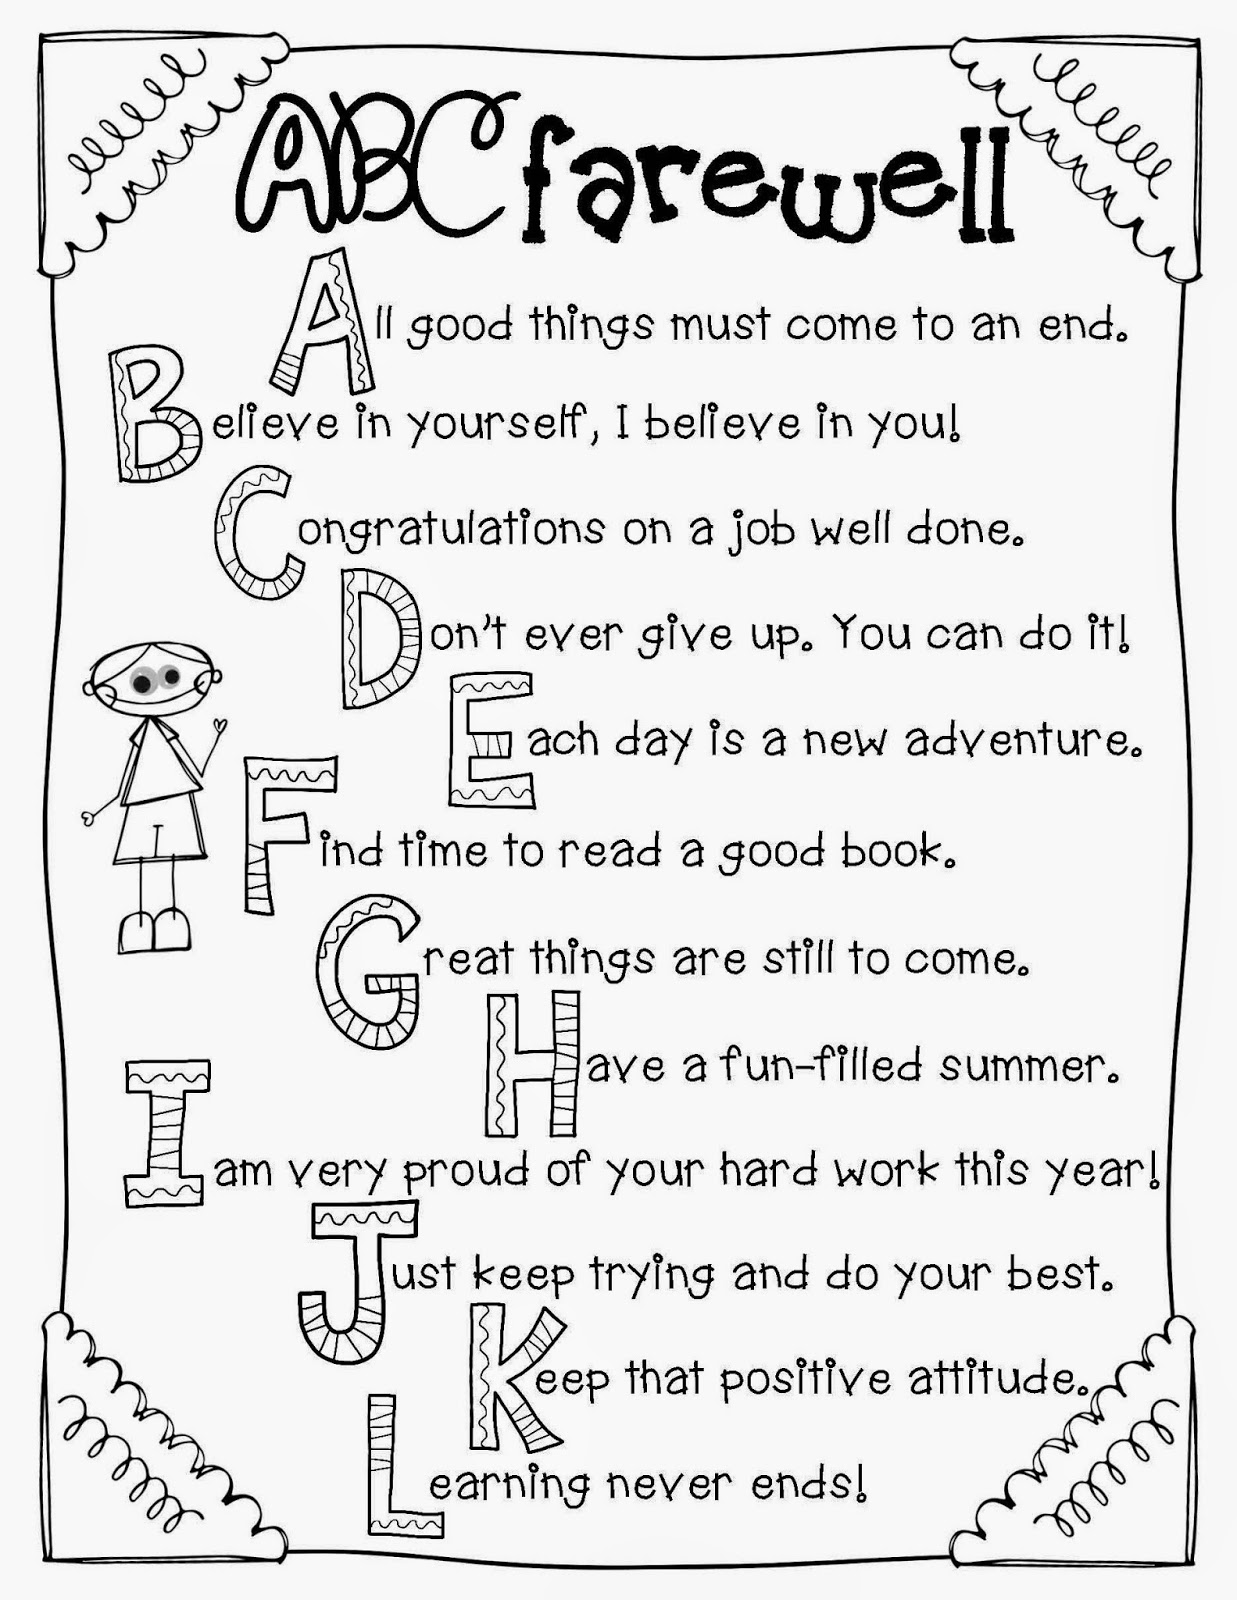 ABC farewell
All good things must come to an end.
Believe in yourself, I believe in you!
Congratulations on a job well done.
Don't ever give up. You can do it!
Each day is a new adventure.
Find time to read a good book.
Great things are still to come.
Have a fun-filled summer.
I am very proud of your hard work this year!
Just keep trying and do your best.
Keep that positive attitude.
Learning never ends!